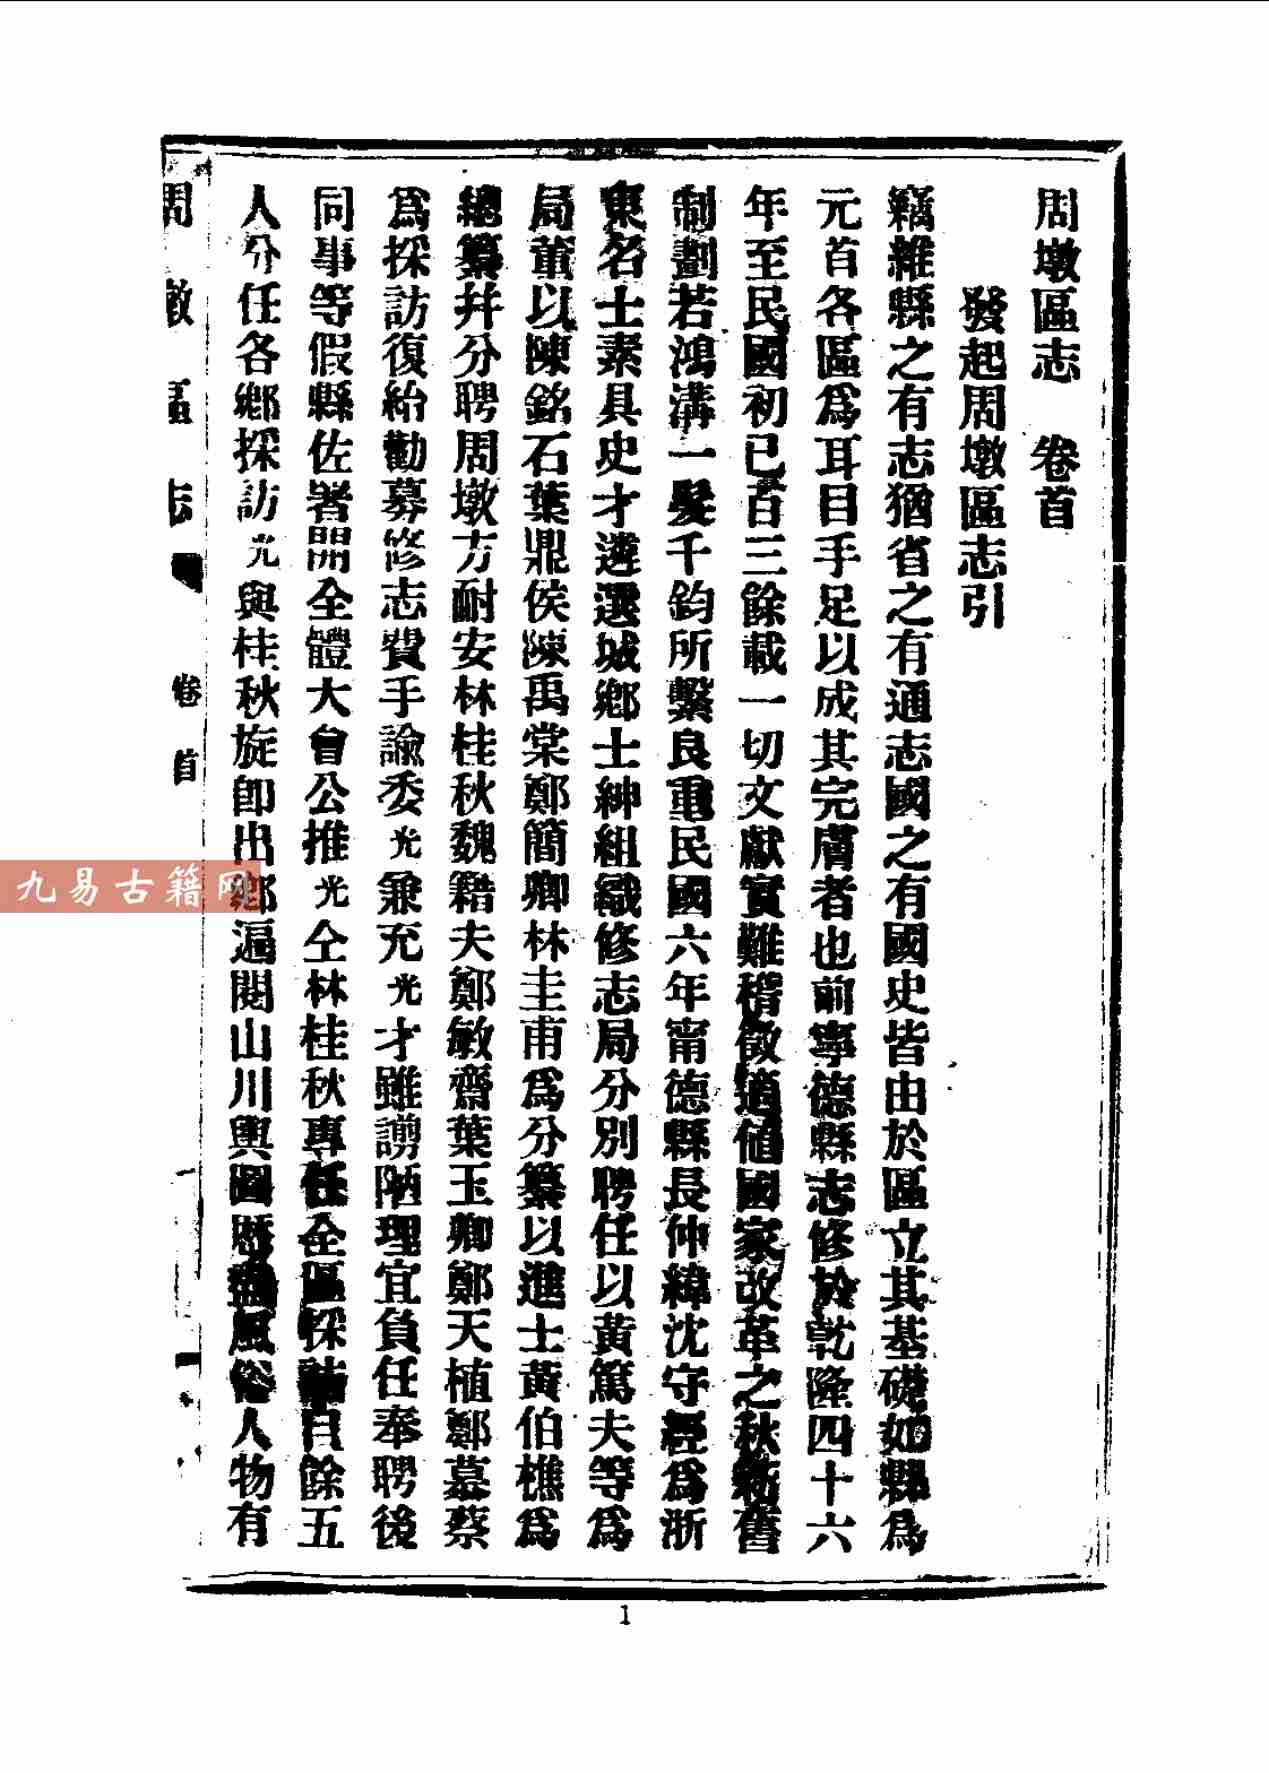 周墩區志　卷首
發起周墩區志引
竊維縣之有志猶省之有通志國之有國史皆由於區立其基礎如縣爲
元首各區爲耳目手足以成其完膚者也前寧德縣志修於乾隆四十六
年至民國初已百三餘載一切文獻實難稽徵適值國家改革之秋新舊
制劃若鴻溝一髮千鈞所繫良重民國六年甯德縣長仲緯沈守經爲浙
東名士素具史才遴選城鄉士紳組織修志局分別聘任以黃篤夫等爲
局董以陳銘石葉鼎侯陳禹棠鄭簡卿林圭甫爲分纂以進士黃伯樵爲
總纂幷分聘周墩方耐安林桂秋魏籍夫鄭敏齋葉玉卿鄭天植鄭慕蔡
爲採訪復給勸募修志費手諭委光兼充光才雖謭陋理宜負任奉聘後
同事等假縣佐署開全體大會公推光仝林桂秋專任全區採訪自餘五
人分任各鄉採訪光與桂秋旋卽出鄉遍閱山川輿圖風俗人物有
周墩區志
卷首
九易古籍网
1